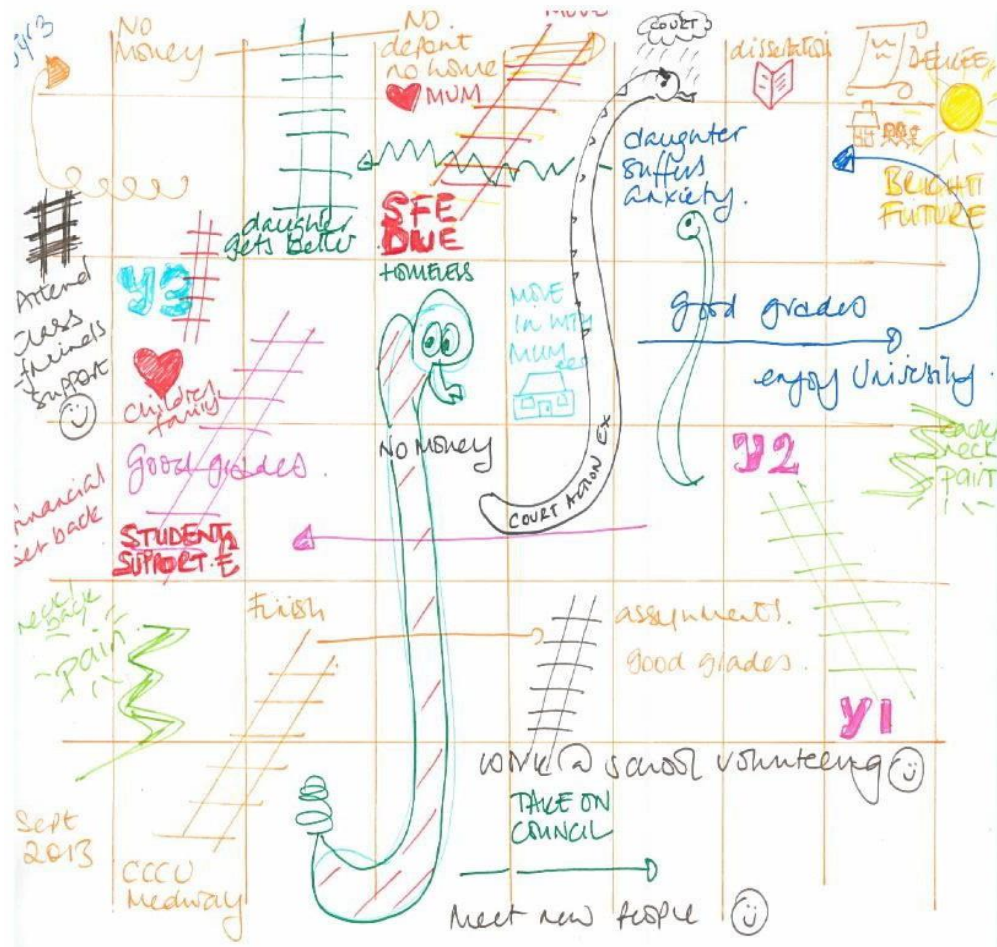 NO
Money
NO
deposit
no home
MUM
MOVE
COURT
dissertation
DEGREE
daughter
suffers
anxiety.
BRIGHT
FUTURE
daughter
gets better
SFE
DUE
HOMELESS
Attend
class
friends
support
Y3
MOVE
IN WITH
MUM
good grades
enjoy University.
Children
family
Good grades.
NO MONEY
COURT ACTION EX
Y2
neck
pain
Financial
set back
STUDENT
SUPPORT.£
neck/
back
pain
Finish
assignments.
good grades.
Y1
work @ school volunteering
Sept
2013
CCCU
Medway
TAKE ON
COUNCIL
Meet new people